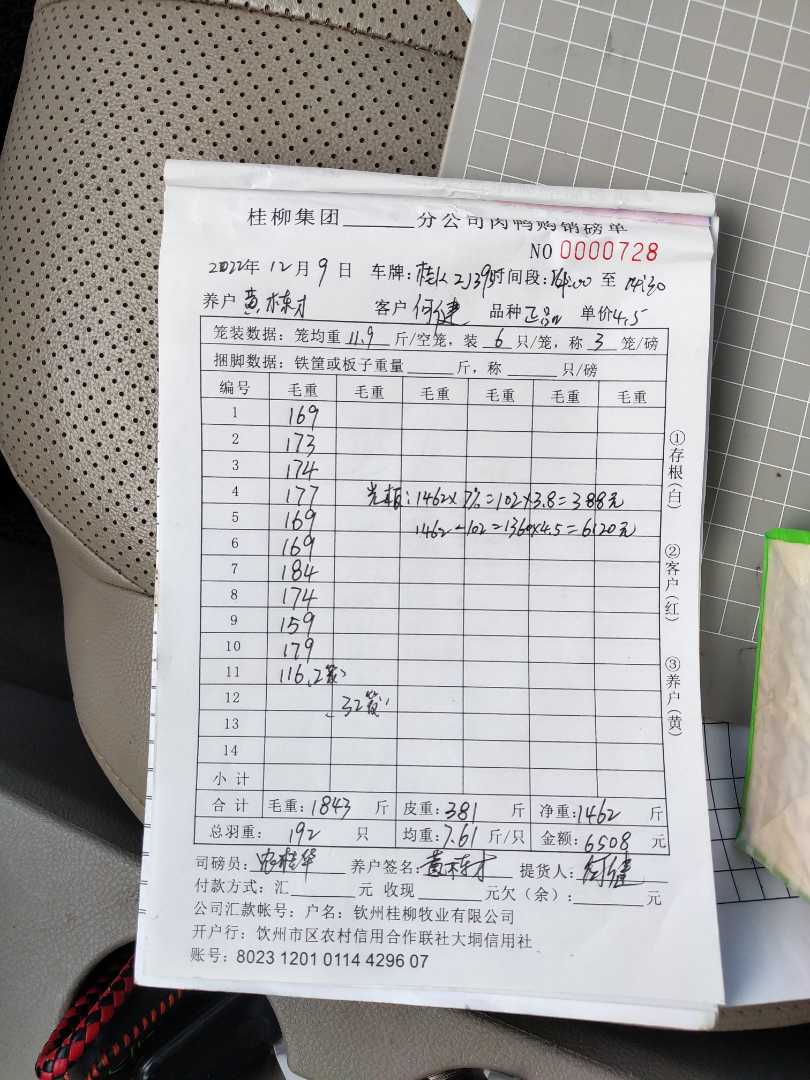 桂柳集团______分公司肉鸭购销磅单
NO 0000728
2022年 12月 9日 车牌: 时间段: 至
养户 黄栋才 客户 何健 品种 正品 单价4.5
笼装数据:笼均重 11.9 斤/空笼,装 6 只/笼,称 3 笼/磅
捆脚数据:铁筐或板子重量______斤,称______只/磅
编号 毛重 毛重 毛重 毛重 毛重 毛重
1 169
2 173
3 174
4 177 光板:1462×7%=102×3.8=388元
5 169 1462-102=1360×4.5=6120元
6 169
7 184
8 174
9 159
10 179
11 116,2笼
12 32笼
13
14
小计
合计 毛重:1843 斤 皮重:381 斤 净重:1462 斤
总羽重: 192 只 均重:7.61 斤/只 金额:6508 元
司磅员: 养户签名:黄栋才 提货人:何健
付款方式:汇______元 收现______元欠(余):______元
公司汇款帐号:户名:钦州桂柳牧业有限公司
开户行:饮州市区农村信用合作联社大垌信用社
账号:8023 1201 0114 4296 07
①存根(白)
②客户(红)
③养户(黄)